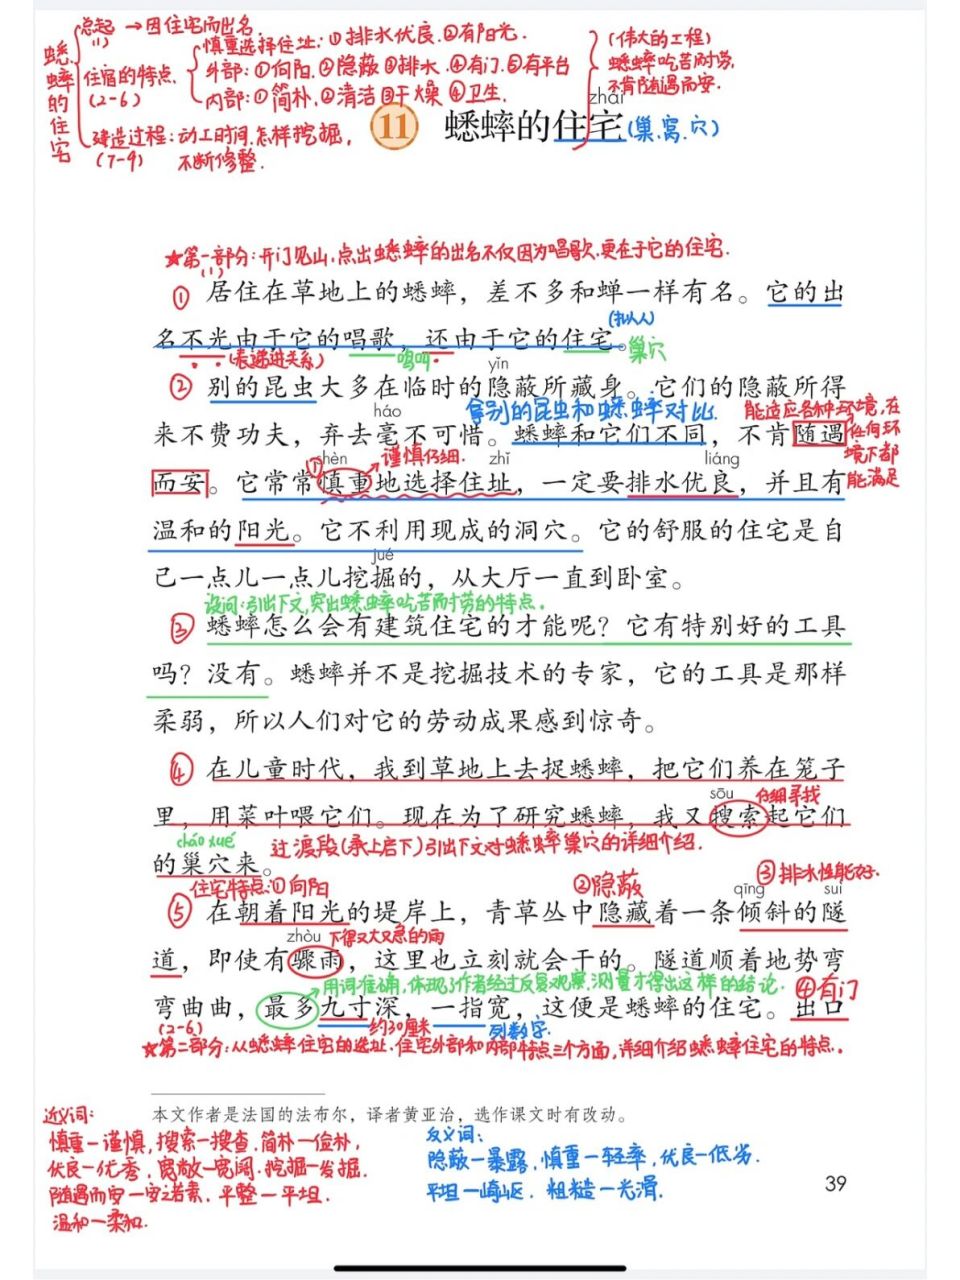 蟋蟀的住宅
总起(1) → 因住宅而出名.
住宿的特点.(2-6)
慎重选择住址:①排水优良.②有阳光.
外部:①向阳.②隐蔽③排水.④有门.⑤有平台
内部:①简朴.②清洁③干燥④卫生.
(伟大的工程)
蟋蟀吃苦而耐劳,
不肯随遇而安.
建造过程:动工时间.怎样挖掘,
(7-9) 不断修整.
zhái
11 蟋蟀的住宅(巢.窝.穴)
★第一部分:开门见山,点出蟋蟀的出名不仅因为唱歌.更在于它的住宅.
(1)
① 居住在草地上的蟋蟀，差不多和蝉一样有名。它的出
(拟人)
名不光由于它的唱歌，还由于它的住宅。
(表递进关系) 鸣叫 巢穴
yǐn
② 别的昆虫大多在临时的隐蔽所藏身。它们的隐蔽所得
háo 拿别的昆虫和蟋蟀对比. 能适应各种环境,在
来不费功夫，弃去毫不可惜。蟋蟀和它们不同，不肯随遇
任何环
境下都
能满足
① shèn 谨慎仔细. zhǐ liáng
而安。它常常慎重地选择住址，一定要排水优良，并且有
温和的阳光。它不利用现成的洞穴。它的舒服的住宅是自
jué
己一点儿一点儿挖掘的，从大厅一直到卧室。
设问:引出下文,突出蟋蟀吃苦而耐劳的特点.
③ 蟋蟀怎么会有建筑住宅的才能呢？它有特别好的工具
吗？没有。蟋蟀并不是挖掘技术的专家，它的工具是那样
柔弱，所以人们对它的劳动成果感到惊奇。
④ 在儿童时代，我到草地上去捉蟋蟀，把它们养在笼子
sōu 仔细寻找
里，用菜叶喂它们。现在为了研究蟋蟀，我又搜索起它们
cháo xué
的巢穴来。
过渡段(承上启下)引出下文对蟋蟀巢穴的详细介绍.
住宅特点:①向阳 ②隐蔽 ③排水性能好.
qīng suì
⑤ 在朝着阳光的堤岸上，青草丛中隐藏着一条倾斜的隧
zhòu 下得又大又急的雨
道，即使有骤雨，这里也立刻就会干的。隧道顺着地势弯
用词准确,体现了作者经过反复观察,测量才得出这样的结论. ④有门
弯曲曲，最多九寸深，一指宽，这便是蟋蟀的住宅。出口
(2-6) 约30厘米 列数字.
★第二部分:从蟋蟀住宅的选址.住宅外部和内部特点三个方面,详细介绍蟋蟀住宅的特点.
本文作者是法国的法布尔，译者黄亚治，选作课文时有改动。
近义词:
慎重—谨慎,搜索—搜查.简朴—俭朴,
优良—优秀.宽敞—宽阔.挖掘—发掘.
随遇而安—安之若素.平整—平坦.
温和—柔和.
反义词:
隐蔽—暴露,慎重—轻率,优良—低劣.
平坦—崎岖.粗糙—光滑.
39